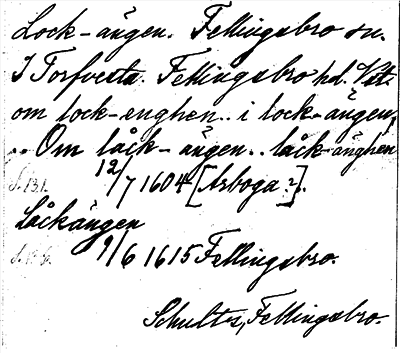 Lock-ängen. Fellingsbro sn.
I Torfvesta. Fellingsbro hd. Vstm.
om lock-enghen.. i lock-ängen,
.. Om låck-ängen.. låck-änghen
S. 131. 12/7 1604 [Arboga?].
Låckängen
9/6 1615 Fellingsbro.
Schultes, Fellingsbro.